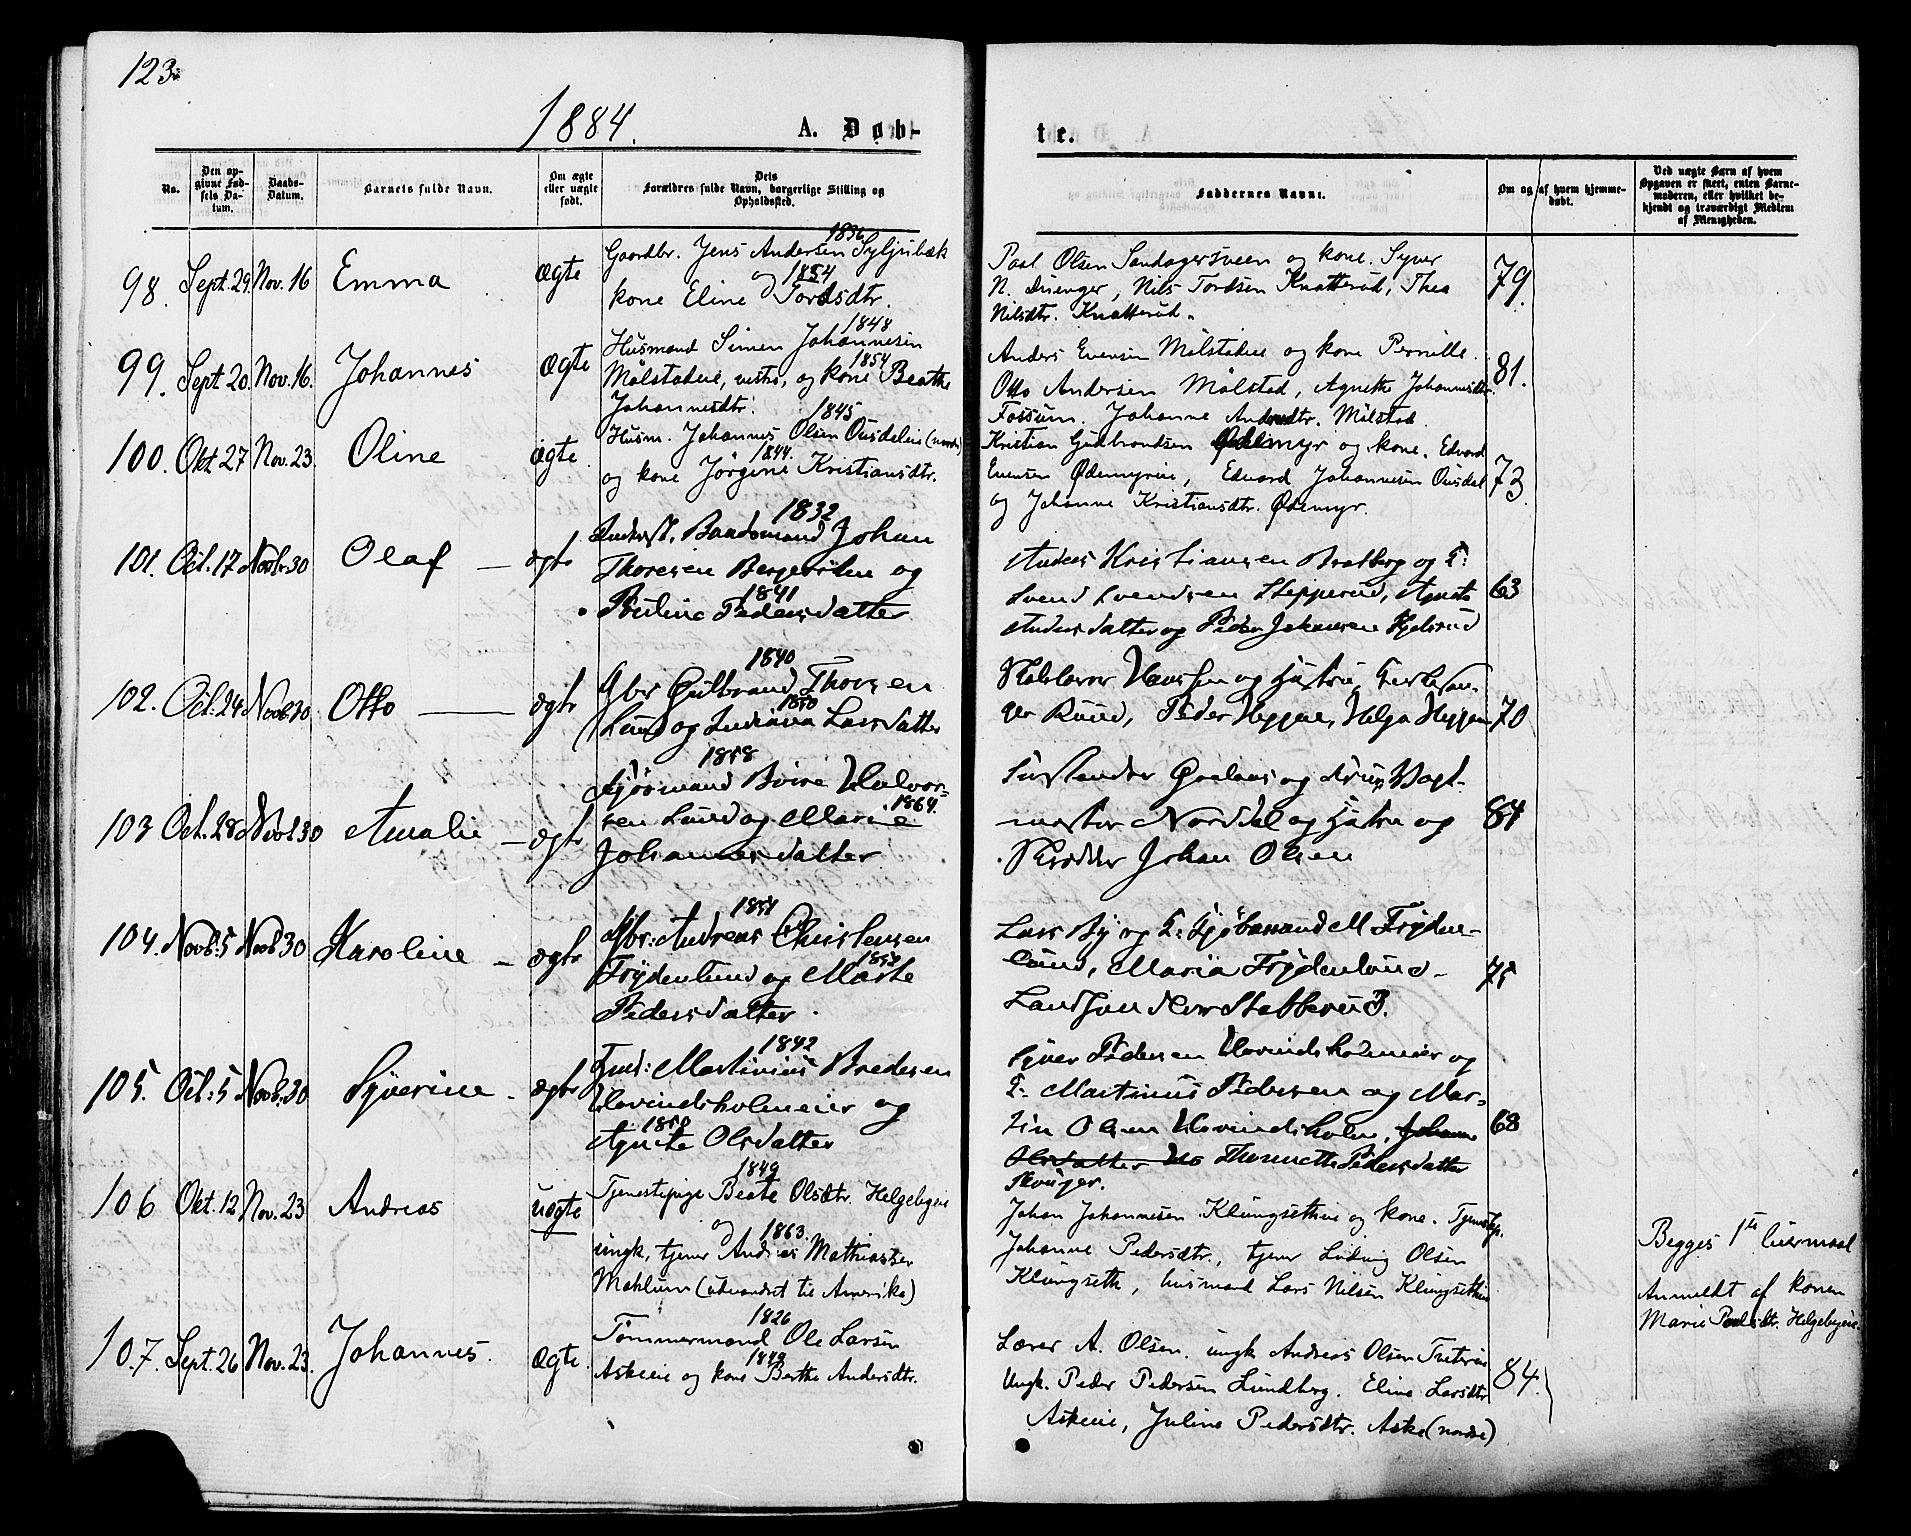 123.
1884.
A. Døb-
te.
No.
Den op-
givne Fød-
sels Da-
tum.
Daabs-
Datum.
Barnets fulde Navn.
Om ægte
eller uægte
født.
Dets
Forældres fulde Navn, borgerlige Stilling og
Opholdssted.
Faddernes Navne.
Om og af hvem hjemme-
døbt.
Ved uægte Barn af hvem
Opgaven er skeet, enten Barne-
moderen, eller hvilket be-
kjendt og troværdigt Medlem
af Menigheden.
98. Sept. 29. Nov. 16 Emma ægte
1836
Gaardbr. Jens Andersen Syljubæk
og 1854
kone Eline Tordsdtr.
Paal Olsen Sandagersveen og kone. Syver
N. Duenger, Nils Tordsen Knatterud, Thea
Nilsdtr. Knatterud.
79.
99. Sept. 20. Nov. 16. Johannes ægte
1848
Husmand Simen Johannesen
1854
Målstadeie, vestre, og kone Beathe
Johannesdtr.
Anders Evensen Målstadeie og kone Pernille.
Otto Andersen Målstad, Agnethe Johannesdtr.
Fossum. Johanne Andersdtr. Målstad.
81.
100. Okt. 27 Nov. 23. Oline ægte.
1845
Husm. Johannes Olsen Ousdaleie (nordre)
1844.
og kone Jørgine Kristiansdtr.
Kristian Gudbrandsen Ødemyr og kone. Edvard
Evensen Ødemyreie, Edvard Johannesen Ousdal
og Johanne Kristiansdtr. Ødemyr.
73
101. Oct. 17 Novbr. 30 Olaf ægte
1832
Baadsmand Johan
Thoresen og
1841
Pauline Pedersdatter
Anders Kristiansen Bratberg og
Svend Svendsen Stepperud, Agnete
Andersdatter og Peder Johansen
63
102. Oct. 24 Novb. 30. Otto ægte
1840
Gbr Gulbrand Thorsen
1850
Lund og Indiana Larsdatter
Hansen og Hustru,
Ruud, Peder Heggen, Helga Heggen
70
103 Oct. 28 Novb. 30 Amalie ægte
1858
Halvor-
1864.
sen Lund og Marie
Johannesdatter
og Vagt-
mester Nordal og Hustru og
Skrædder Johan Olsen
84
104. Novb. 5 Novb. 30 Karoline ægte
1851
Gbr: Andreas Christensen
Frydenlund og Marte
Pedersdatter.
Lars By og M Fryden-
lund, Maria Frydenlund
75
105. Oct. 5 Novb. 30 Syverine ægte
1842
Martinius Bredesen
Hovindsholmeier og
1850
Agnete Olsdatter
Syver Pedersen Hovindsholmeier og
Martinus Pedersen og Mar-
tin Olsen Hovindsholm, Johanne
Olsdatter Thonnette Pedersdatter
68
106 Okt. 12 Nov. 23 Andreas uægte
1849
Tjenestepige Beate Olsdtr. Helgebyeie
og 1863.
ungk, tjener Andreas Mathiassen
Mæhlum (udvandret til Amerika)
Johan Johannesen Klungsetheie og kone. Tjenestep.
Johanne Pedersdtr., tjener Ludvig Olsen
Klungseth, husmand Lars Nilsen Klungsetheie
Begges 1ste leiermaal
Anmeldt af konen
Marie Paulsdtr. Helgebyeie.
107. Sept. 26 Nov. 23. Johannes. ægte.
1826
Tømmermand Ole Larsen
1849
Askeeie og kone Berthe Andersdtr.
Lærer A. Olsen. ungk Andreas Olsen
Ungk. Peder Pedersen Lundberg. Eline Larsdtr
Askeeie, Juline Pedersdtr. Aske (nordre)
84.